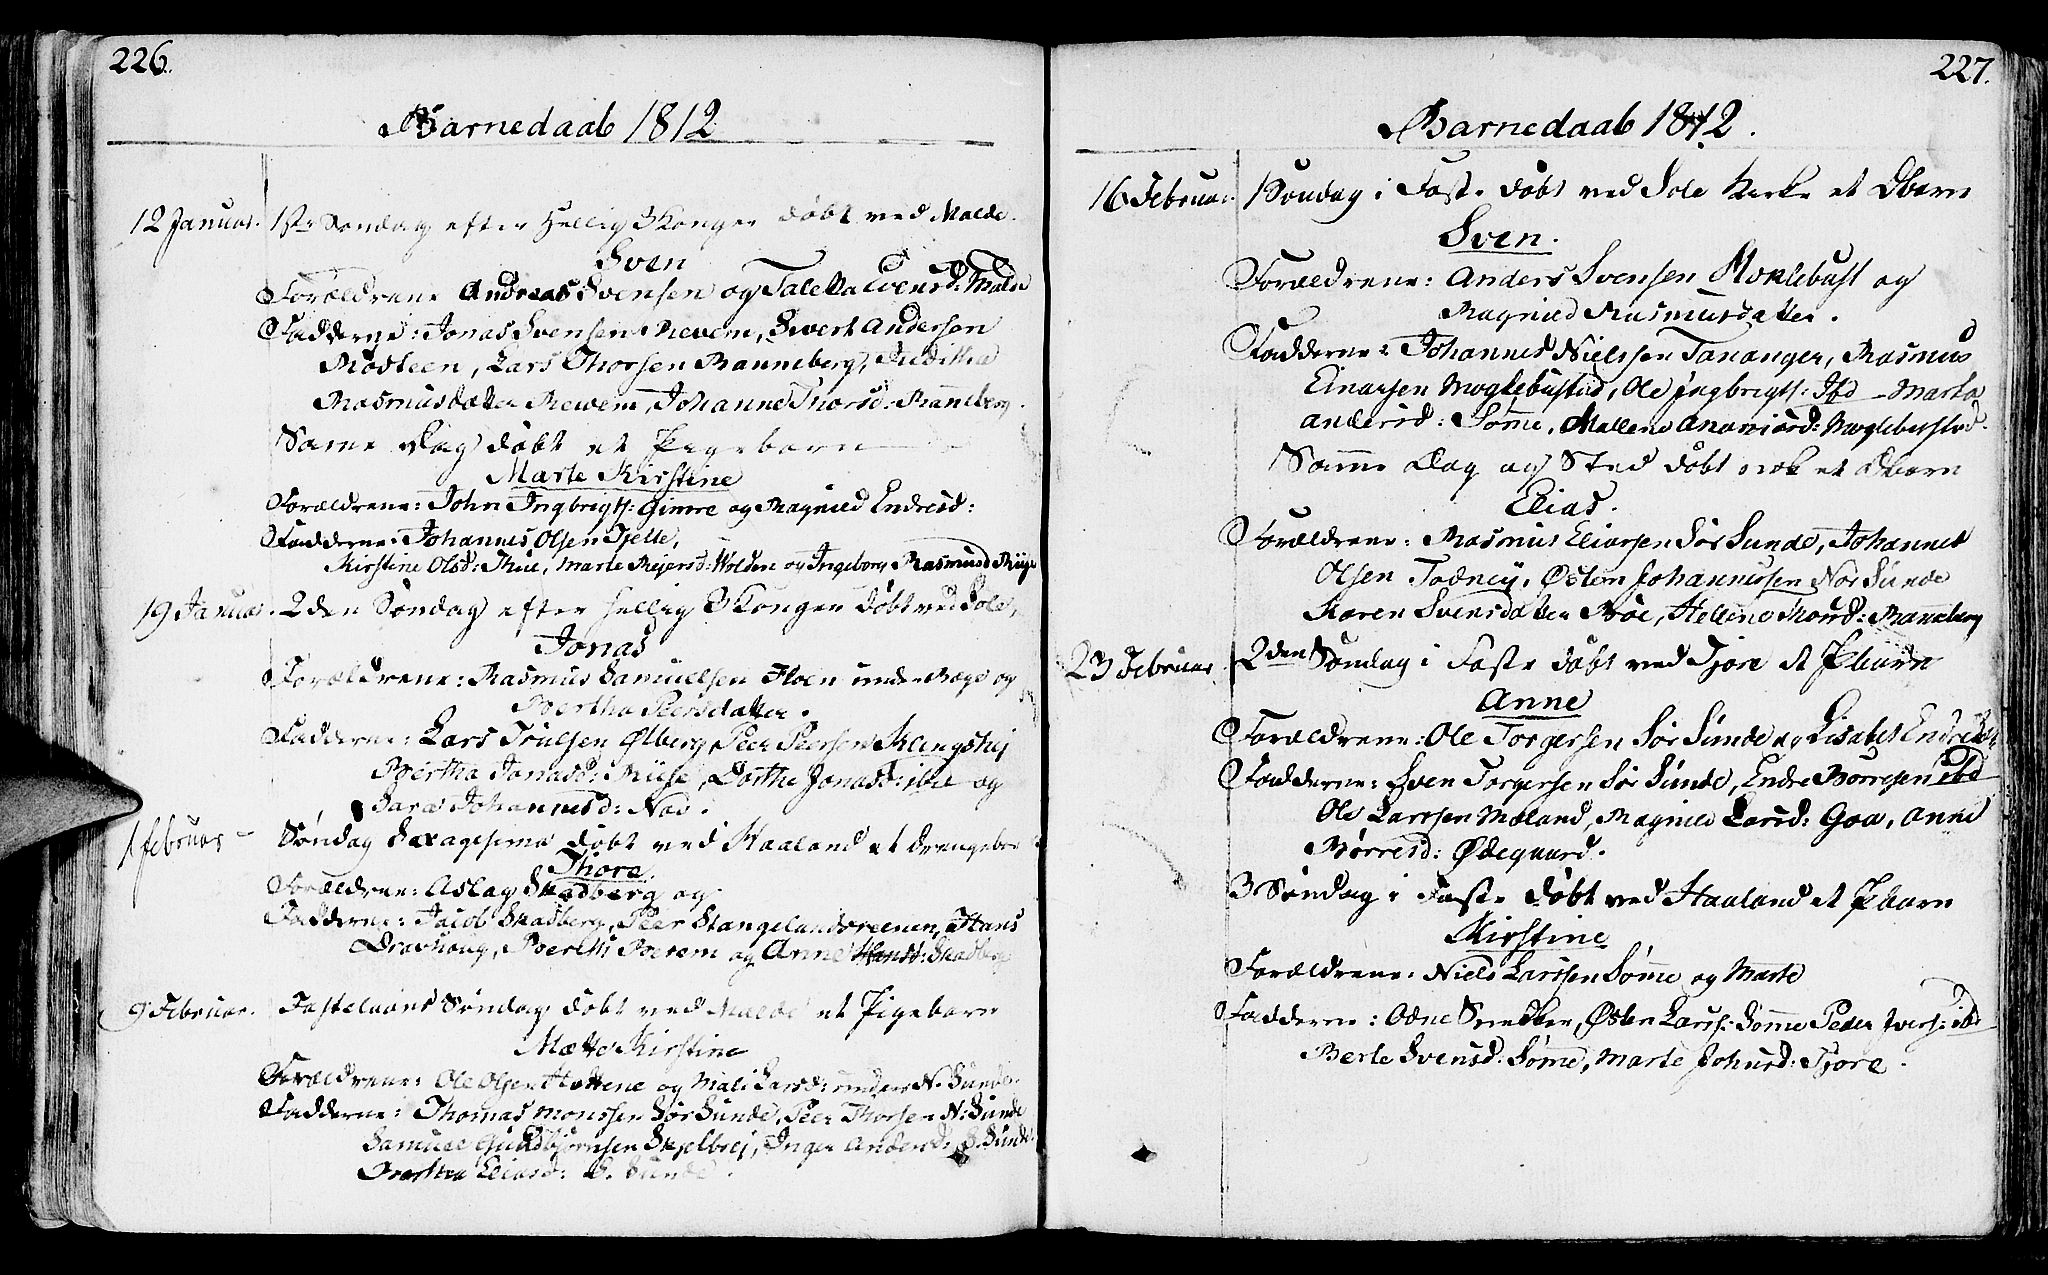 226.
Barnedaab 1812
12 Januar. 1ste Søndag efter Hellig 3 Konger døbt ved Malde.
Sven
Forældrene Andreas Svensen og Taletta Evensd: Malde
Fadderne: Jonas Svensen Revem, Sivert Andersen
Rødsteen, Lars Thorsen Ranneberg,
Rasmusdatter Revem, Johanne Thorsd: Ranneberg.
Same Dag døbt et Pigebarn
Marte Kirstine
Forældrene: John Ingbrigts: Gimre og Magnild Endresd:
Fadderne: Johannes Olsen Tjelte,
Kirstine Olsd: Thue, Marte Rejersd: Wolden og Ingeborg Rasmusd Riige
19 Januar. 2den Søndag efter Hellig 3 Konger døbt ved Sole,
Jonas
Forældrene: Rasmus Samuelsen Floen under Rege og
Bertha Peersdatter.
Fadderne: Lars Truelsen Ølberg, Peer Peersen Klingshej
Bertha Jonasd: Riise, Dorthe Jonasd: ibd og
Sara Johannesd: Næs.
1 februar - Søndag Sexagesima døbt ved Haaland et drengebrn
Thore.
Forældrene: Aslag Skadberg og
Fadderne: Jacob Skadberg, Peer Stangelandsreenen, Hans
Dravhoug, Berthe Berem og Anne Hansd: Skadberg
9 Februar. Fastelavns Søndag døbt ved Malde et Pigebarn
Mætte Kirstine
Forældrene: Ole Olsen Hættene og Mali Larsd: under N. Sunde.
Fadderne: Thomas Monssen Sør Sunde, Peer Thorsen N: Sunde
Samuel Gundbjørnsen Skjelbrej, Inger Andersd: S. Sunde
Eliasd: S. Sunde.
227.
Barnedaab 1812.
16 Februar. 1 Søndag i Faste døbt ved Sole Kirke et Dbarn
Sven.
Forældrene: Anders Svensen Moklebust og
Magnild Rasmusdatter.
Fadderne: Johannes Nielssen Tananger, Rasmus
Einarsen Moglebustad, Ole Ingbrigts: Ibd - Marta
Andersd: Sømme, Mallene Ananiasd: Moglebustad.
Samme Dag og Sted døbt nok et Dbarn
Elias.
Forældrene: Rasmus Eliassen Sør Sunde, Johannes
Olsen Todney, Østen Johannessen Nor Sunde
Karen Svensdatter Bøe, Hellene Thorsd: Ranneberg
23 Februar. 2den Søndag i Faste døbt ved Tjore et Pbarn
Anne
Forældrene: Ole Torgersen Sør Sunde og Lisabet Endresdtr
Fadderne: Sven Torgersen Sør Sunde, Endre Børresen ibd
Ole Larssen Meland, Magnild Larsd: Goa, Anne
Børresd: Ødegaard.
3 Søndag i Faste døbt ved Haaland et Pbarn
Kirstine
Forældrene: Niels Larssen Sømme og Marte
Fadderne: Odne Snedker, Østen Larss: Sømme Peder Ivers: ibd
Berte Svensd: Sømme, Marte Johnsd: Tjore.